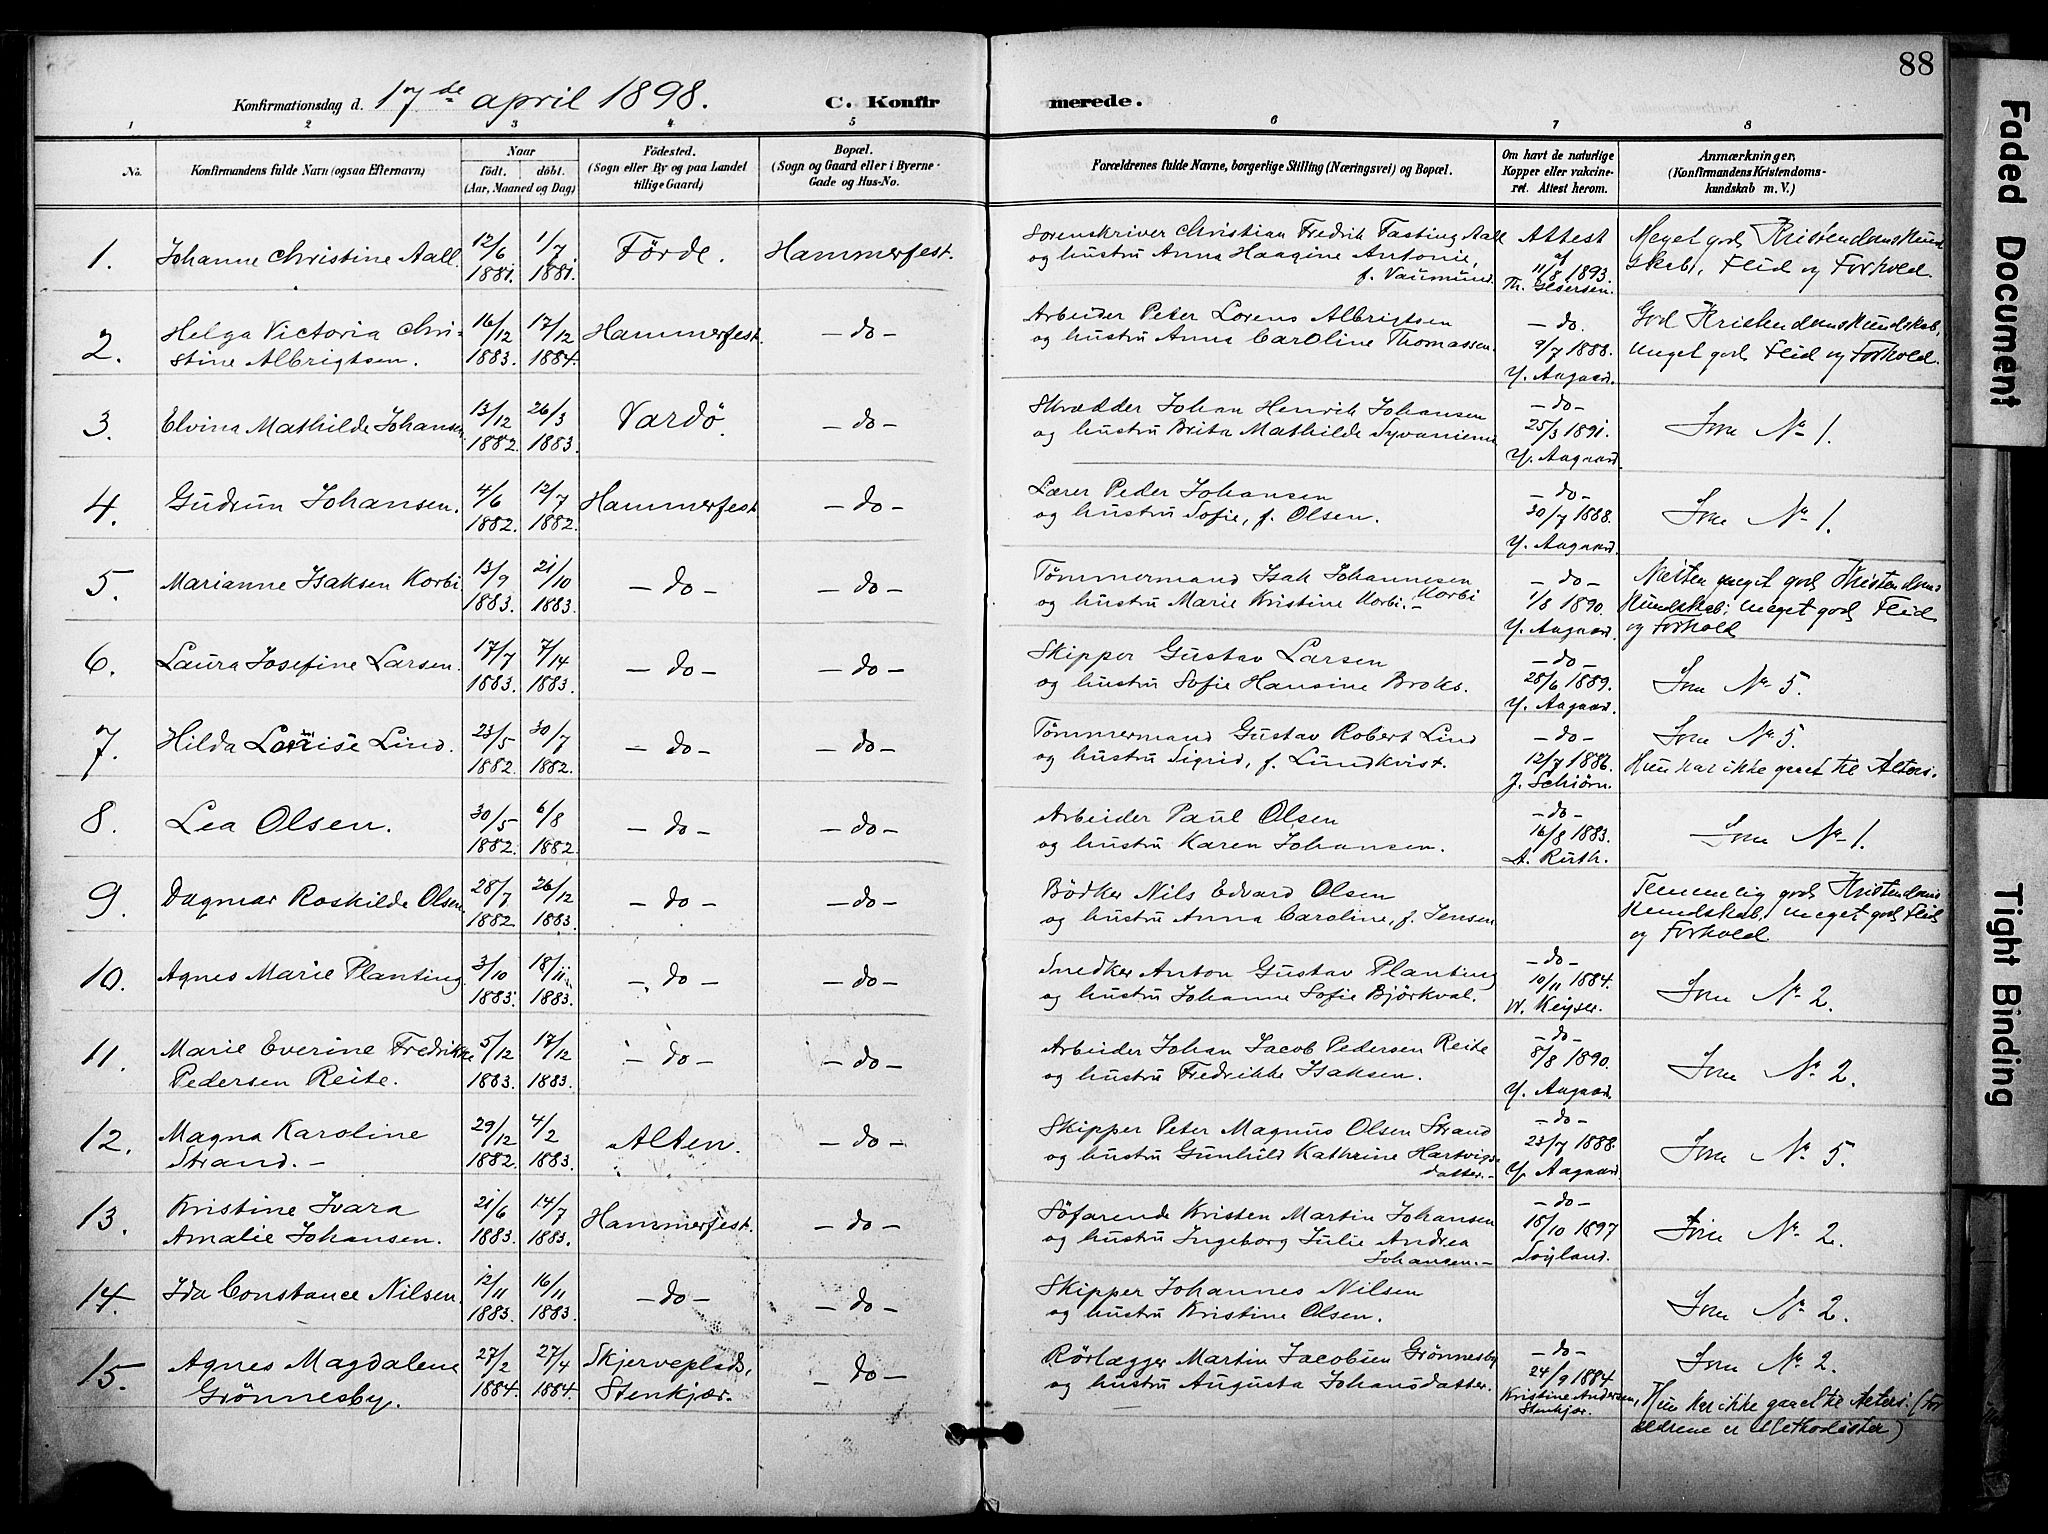 88
Konfirmationsdag d. 17de april 1898.
C. Konfirmerede.
1 2 3 4 5 6 7 8
No.
Konfirmandens fulde Navn (ogsaa Efternavn)
Naar
födt. döbt.
(Aar, Maaned og Dag)
Födested.
(Sogn eller By og paa Landet
tillige Gaard)
Bopæl.
(Sogn og Gaard eller i Byerne
Gade og Hus-No.
Forældrenes fulde Navne, borgerlige Stilling (Næringsvei) og Bopæl.
Om havt de naturlige
Kopper eller vakcine-
ret. Attest herom.
Anmærkninger,
(Konfirmandens Kristendoms-
kundskab m. V.)
1. Johanne Christine Aall. 12/6 1881. 1/7 1881. Förde. Hammerfest.
Sorenskriver Christian Fredrik Fasting Aall
og hustru Anna Haagine Antonie,
f. Vaumund.
Attest
af
11/8 1893.
Meget god Kristendomskund
skab, Flid og Forhold.
2. Helga Victoria Chri-
stine Albrigtsen. 16/12 1883. 17/12 1884. Hammerfest. — do —
Arbeider Peter Lorens Albrigtsen
og hustru Anna Caroline Thomassen.
— do.
9/7 1888.
Y. Aagaard.
God Kristendomskundskab,
meget god Flid og Forhold.
3. Elvina Mathilde Johansen 13/12 1882. 26/3 1883. Vardö. — do —
Skrædder Johan Henrik Johansen
og hustru Brita Mathilde
— do —
25/3 1891.
Y. Aagaard.
Som No 1.
4. Gudrun Johansen. 4/6 1882. 12/7 1882. Hammerfest — do —
Lærer Peder Johansen
og hustru Sofie, f. Olsen.
— do —
30/7 1888.
Y. Aagaard.
Som No 1.
5. Marianne Isaksen Korbi 13/9 1883. 21/10 1883. — do — — do —
Tömmermand Isak Johannesen
Korbi
og hustru Marie Kristine Korbi.-
— do —
1/8 1890.
Y. Aagaard.
Næsten meget god Kristendoms
kundskab; meget god Flid
og Forhold
6. Laura Josefine Larsen. 17/7 1883. 7/14 1883. — do — — do —
Skipper Gustav Larsen
og hustru Sofie Hansine Broks.
— do —
28/6 1889.
Y. Aagaard.
Som No 5.
7. Hilda Lovise Lind. 23/5 1882. 30/7 1882. — do — — do —
Tömmermand Gustav Robert Lind
og hustru Sigrid, f. Lundkvist.
— do —
12/7 1886.
J. Schiörn.
Som No 5.
Hun har ikke gaaet til Alters.
8. Lea Olsen. 30/5 1882. 6/8 1882. — do — — do —
Arbeider Paul Olsen
og hustru Karen Johansen.
— do —
16/8 1883.
A. Ruth.
Som No 1.
9. Dagmar Roskilde Olsen 28/7 1882. 26/12 1883. — do — — do —
Bödker Nils Edvard Olsen
og hustru Anna Caroline, f. Jensen
Temmelig god Kristendoms
kundskab, meget god Flid
og Forhold
10. Agnes Marie Planting. 3/10 1883. 18/11 1883. — do — — do —
Snedker Anton Gustav Planting
og hustru Johanne Sofie Björkval.
— do —
10/11 1884.
W. Keyser.
Som No 2.
11. Marie Everine Fredrikke
Pedersen Reite. 5/12 1883. 17/12 1883. — do — — do —
Arbeider Johan Jacob Pedersen Reite
og hustru Fredrikke Isaksen.
— do —
8/8 1890.
Y. Aagaard.
Som No 2.
12. Magna Karoline
Strand. - 29/12 1882. 4/2 1883. Alten. — do —
Skipper Peter Magnus Olsen Strand
og hustru Gunhild Kathrine Hartvigs-
datter.-
— do —
23/7 1888.
Y. Aagaard.
Som No 5.
13. Kristine Ivara
Amalie Johansen. 21/6 1883. 14/7 1883. Hammerfest. — do —
Söfarende Kristen Martin Johansen
og hustru Ingeborg Julie Andrea
Johansen.-
— do —
18/10 1897
Soyland.
Som No 2.
14. Ida Constance Nilsen. 12/11 1883. 16/11 1883. — do — — do —
Skipper Johannes Nilsen
og hustru Kristine Olsen.
Som No 2.
15. Agnes Magdalene
Grönnesby. 27/2 1884. 27/4 1884. Skjerveplads,
Stenkjær. — do —
Rörlægger Martin Jacobsen Grönnesby
og hustru Augusta Johansdatter.
— do —
24/9 1884
Kristine Andersen,
Stenkjær.
Som No 2.
Hun har ikke gaaet til Alters. (For
ældrene er Methodister)
Faded Document
Tight Binding